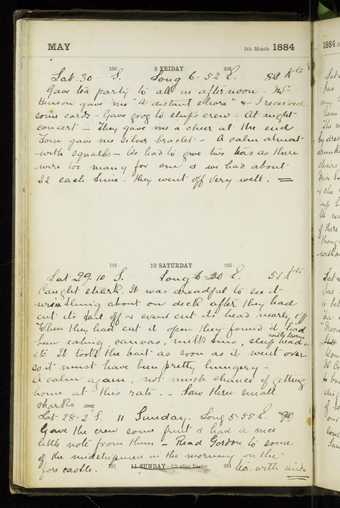 MAY 5th Month 1884
9 FRIDAY
Lat. 30 S. Long 6.52 E. 88 K
Gave tea party to all us afternoon. Mr
Benson gave me "A distant shore" & I received
some cards - Gave grog to ship's crew. At night
concert - They gave me a cheer at the end
Tom gave me silver bracelet - A calm almost
with squalls - We had to give two teas as there
were too many for one & we had about
22 each time. They went off very well.
10 SATURDAY
Lat 29.10 S. Long 6.20 E. 51 K
Caught shark. It was dreadful to see it
writhing about on deck after they had
cut its tail off & even cut its head nearly off
When they had cut it open they found it had
been eating canvas, nutts, sheep head
etc It took the bait as soon as it went over
so it must have been pretty hungry -
A calm again, not much chance of getting
home at this rate. - Saw three small
sharks
Lat. 28.2 S. 11 Sunday. Long 5.55 E.
Gave the crew some fruit & had a nice
little note from them - Read Gordon to some
of the midshipmen in the morning on the
forecastle. tea with
11 SUNDAY